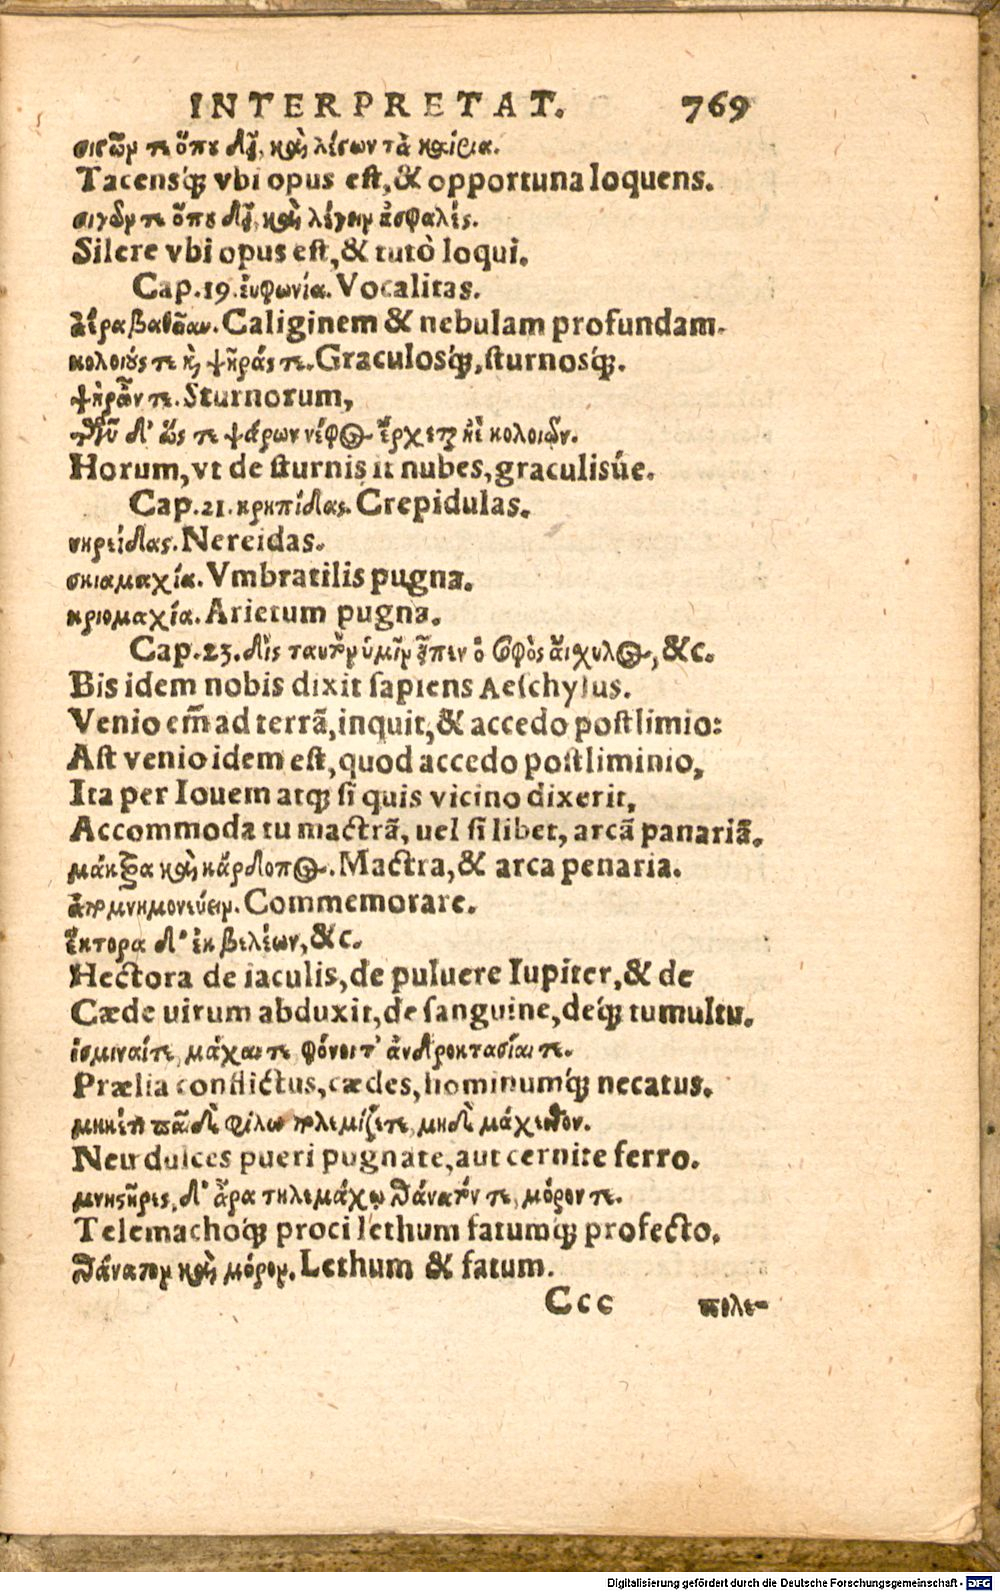 INTERPRETAT. 769
σιγῶν τε ὅπου δεῖ, καὶ λέγων τὰ καίρια.
Tacensq́; vbi opus est, & opportuna loquens.
σιγᾶν τε ὅπου δεῖ, καὶ λέγειν ἀσφαλές.
Silere vbi opus est, & tutò loqui.
Cap. 19. ἐυφωνία. Vocalitas.
ἠέρα βαθεῖαν. Caliginem & nebulam profundam.
κολοιούς τε κὴ ψῆράς τε. Graculosq́;, sturnosq́;.
ψηρῶν τε. Sturnorum,
τῶν δ' ὥς τε ψάρων νέφος ἔρχεται ἠὲ κολοιῶν.
Horum, vt de sturnis it nubes, graculisúe.
Cap. 21. κρηπίδας. Crepidulas.
νηρείδας. Nereidas.
σκιαμαχία. Vmbratilis pugna.
κριομαχία. Arietum pugna.
Cap. 23. δὶς ταυτὸν ὑμῖν εἶπεν ὁ σοφὸς ἄισχυλος, &c.
Bis idem nobis dixit sapiens Aeschylus.
Venio em̄ ad terrā, inquit, & accedo postlimio:
Ast venio idem est, quod accedo postliminio,
Ita per Iouem atq; si quis vicino dixerit,
Accommoda tu mactrā, uel si libet, arcā panariā.
μάκτρα καὶ κάρδοπος. Mactra, & arca penaria.
ἀπομνημονεύειν. Commemorare.
ἕκτορα δ' ἐκ βελέων, &c.
Hectora de iaculis, de puluere Iupiter, & de
Cæde uirum abduxit, de sanguine, deq́; tumultu.
ὑσμιναί τε, μάχαι τε, φόνοι τ' ἀνδροκτασίαι τε.
Prælia conflictus, cædes, hominumq́; necatus.
μηκέτι παῖδε φίλω πολεμίζετε, μηδὲ μάχεσθον.
Neu dulces pueri pugnate, aut cernite ferro.
μνηστῆρες, δ' ἄρα τηλεμάχῳ θάνατόν τε, μόρον τε.
Telemachoq́; proci lethum fatumq́; profecto.
θάνατον καὶ μόρον. Lethum & fatum.
Ccc πολε-
Digitalisierung gefördert durch die Deutsche Forschungsgemeinschaft - DFG